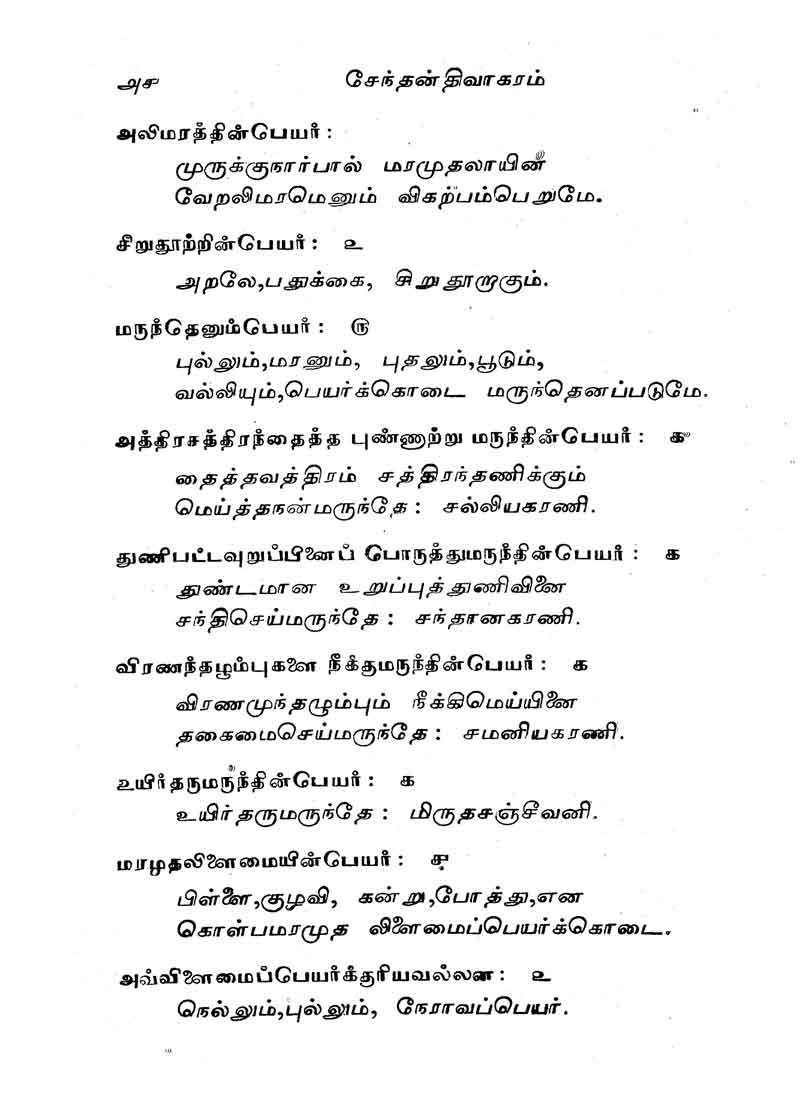 அச சேந்தன் திவாகரம்
அலிமரத்தின்பெயர்:
முருக்குநார்பால் மரமுதலாயின்
வேறலிமரமெனும் விகற்பம்பெறுமே.
சிறுதூற்றின்பெயர்: உ
அறலே,பதுக்கை, சிறுதூறாகும்.
மருந்தெனும்பெயர்: ரு
புல்லும்,மரனும், புதலும்,பூடும்,
வல்லியும்,பெயர்க்கொடை மருந்தெனப்படுமே.
அத்திரசத்திரந்தைத்த புண்ணாற்று மருந்தின்பெயர்: க
தைத்தவத்திரம் சத்திரந்தணிக்கும்
மெய்த்தநன்மருந்தே: சல்லியகரணி.
துணிபட்டவுறுப்பினைப் பொருத்துமருந்தின்பெயர்: க
துண்டமான உறுப்புத்துணிவினை
சந்திசெய்மருந்தே: சந்தானகரணி.
விரணந்தழும்புகளை நீக்குமருந்தின்பெயர்: க
விரணமுந்தழும்பும் நீக்கிமெய்யினை
தகைமைசெய்மருந்தே: சமனியகரணி.
உயிர்தருமருந்தின்பெயர்: க
உயிர்தருமருந்தே: மிருதசஞ்சீவனி.
மரமுதலிளமையின்பெயர்: ச
பிள்ளை,குழவி, கன்று,போத்து,என
கொள்பமரமுத லிளமைப்பெயர்க்கொடை.
அவ்விளமைப்பெயர்க்குரியவல்லன: உ
நெல்லும்,புல்லும், நேராவப்பெயர்.